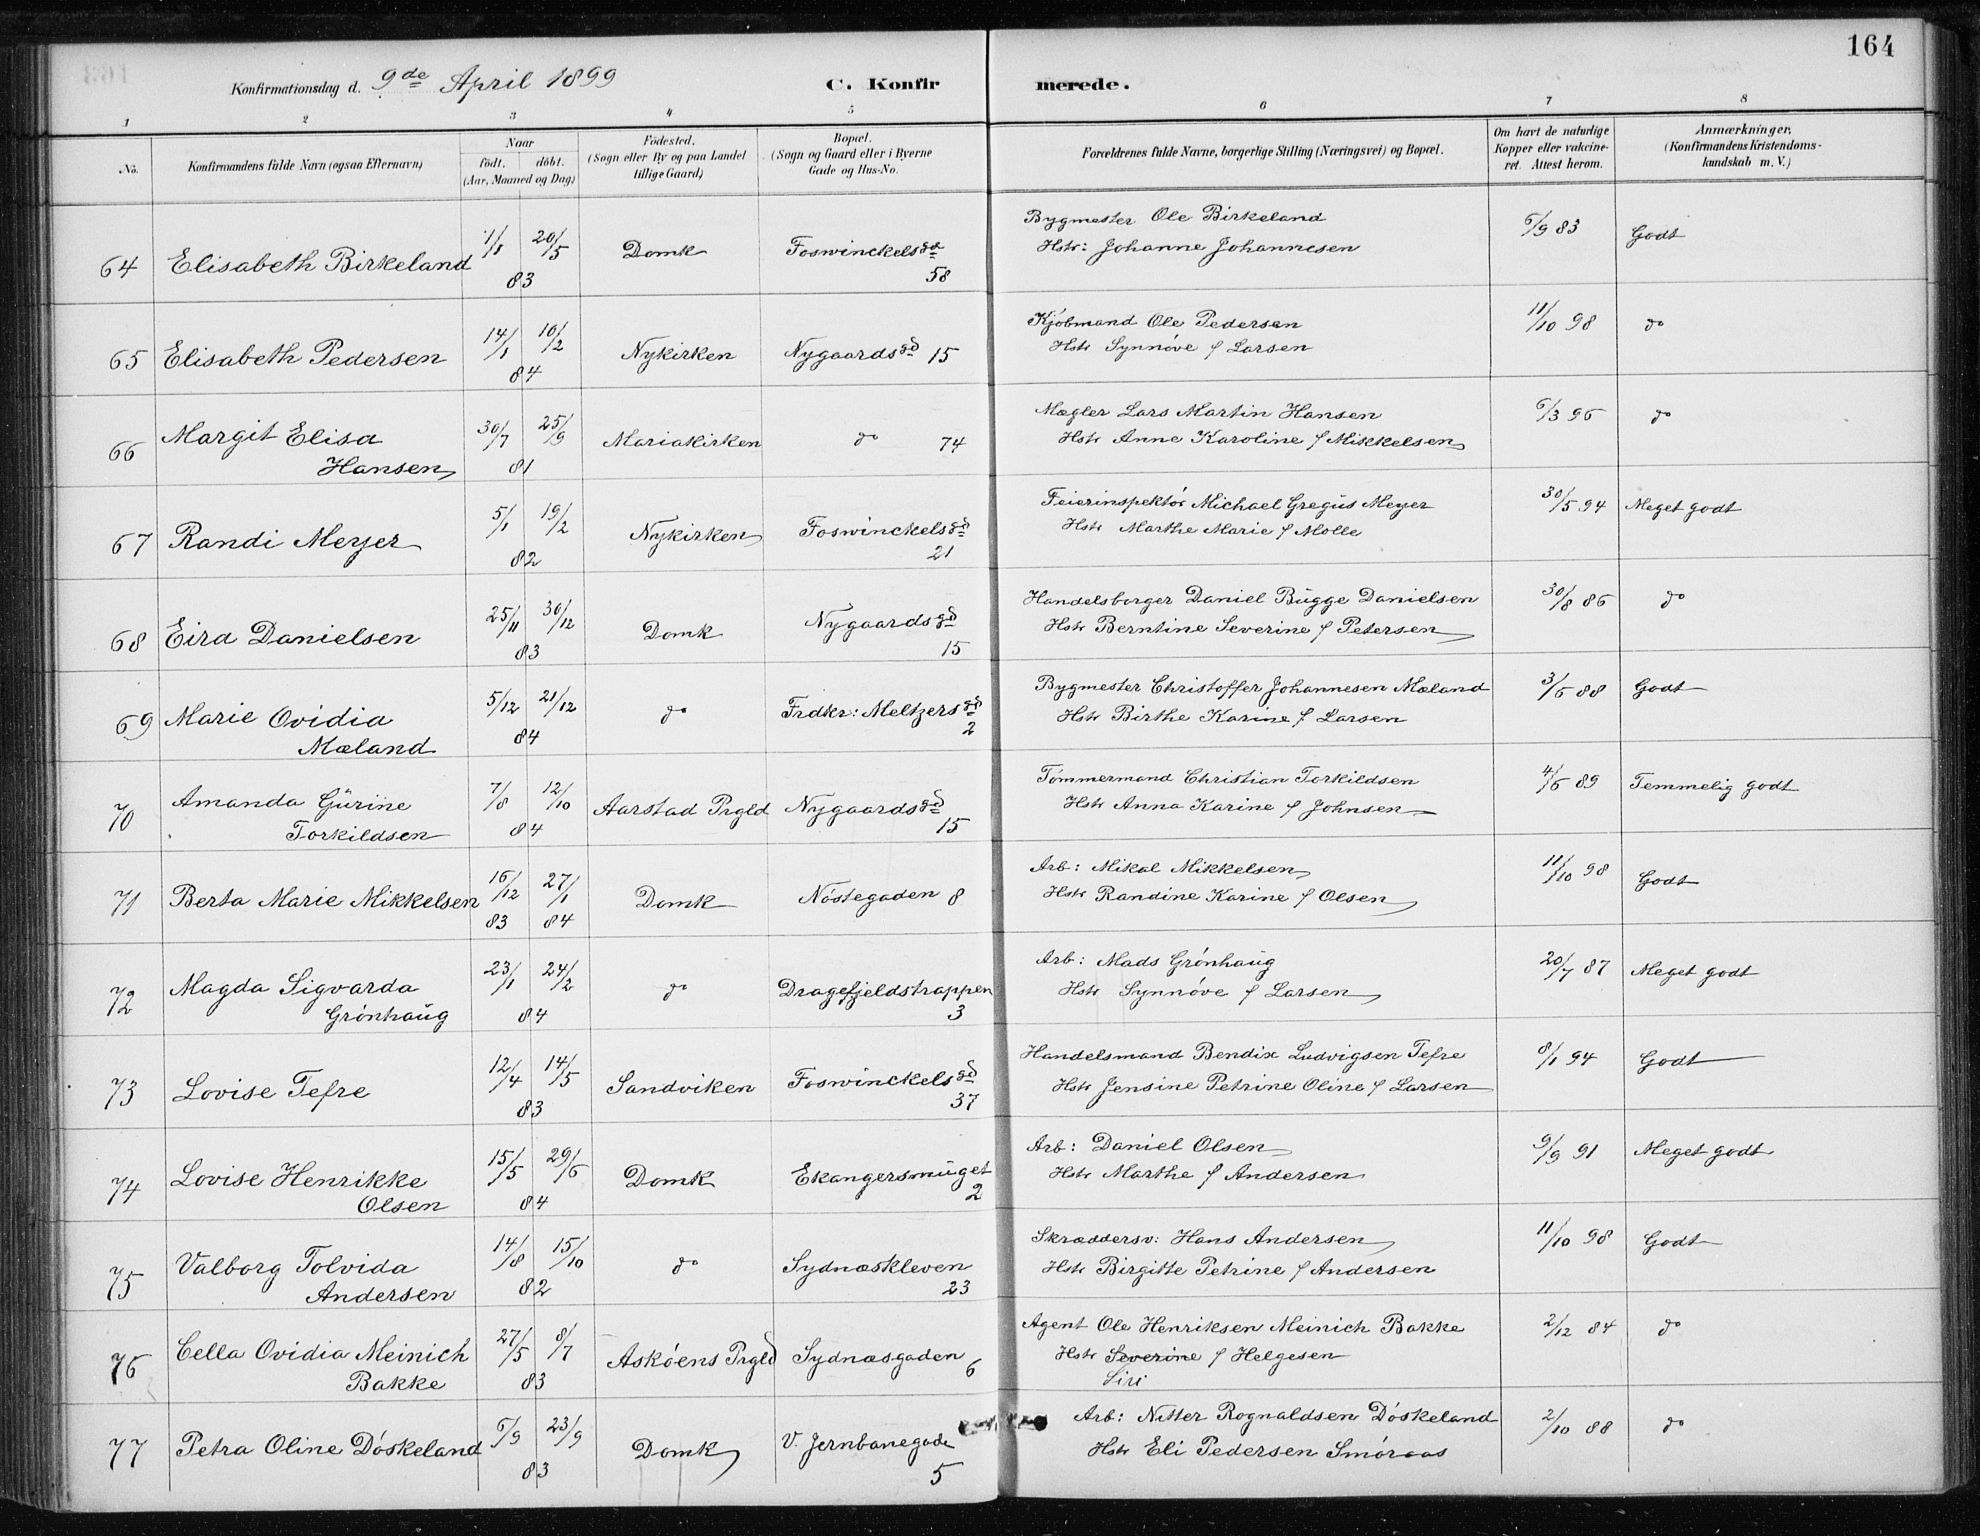 164
Konfirmationsdag d. 9de April 1899 C. Konfirmerede.
1 2 3 4 5 6 7 8
No. Konfirmandens fulde Navn (ogsaa Efternavn) Naar født. døbt. (Aar, Maaned og Dag) Fødested. (Sogn eller By og paa Landet tillige Gaard) Bopæl. (Sogn og Gaard eller i Byerne Gade og Hus-No. Forældrenes fulde Navne, borgerlige Stilling (Næringsvei) og Bopæl. Om havt de naturlige Kopper eller vakcineret. Attest herom. Anmærkninger. (Konfirmandens Kristendomskundskab m. V.)
64 Elisabeth Birkeland 1/1 20/5 83 Domk Foswinckelsgd 58 Bygmester Ole Birkeland Hstr: Johanne Johannesen 6/9 83 Godt
65 Elisabeth Pedersen 14/1 10/2 84 Nykirken Nygaardsgd 15 Kjøbmand Ole Pedersen Hstr Synnøve f Larsen 11/10 98 do
66 Margit Elisa Hansen 30/7 25/9 81 Mariakirken do 74 Mægler Lars Martin Hansen Hstr Anne Karoline f Mikkelsen 6/3 96 do
67 Randi Meyer 5/1 19/2 82 Nykirken Foswinckelsgd 21 Feierinspektør Michael Gregus Meyer Hstr Marthe Marie f Molle 30/5 94 Meget godt
68 Eira Danielsen 25/11 30/12 83 Domk Nygaardsgd 15 Handelsborger Daniel Bugge Danielsen Hstr Berntine Severine f Petersen 30/8 86 do
69 Marie Ovidia Mæland 5/12 21/12 84 do Frdkr: Meltzersgd 2 Bygmester Christoffer Johannesen Mæland Hstr Birthe Karine f Larsen 3/6 88 Godt
70 Amanda Gurine Torkildsen 7/8 12/10 84 Aarstad Prgld Nygaardsgd 15 Tømmermand Christian Torkildsen Hstr Anna Karine f Johnsen 4/6 89 Temmelig godt
71 Berta Marie Mikkelsen 16/12 83 27/1 84 Domk Nøstegaden 8 Arb: Mikal Mikkelsen Hstr Randine Karine f Olsen 11/10 98 Godt
72 Magda Sigvarda Grønhaug 23/1 24/2 84 do Dragefjeldstrappen 3 Arb: Mads Grønhaug Hstr Synnøve f Larsen 20/7 87 Meget godt
73 Lovise Tefre 12/4 14/5 83 Sandviken Foswinckelsgd 37 Handelsmand Bendix Ludvigsen Tefre Hstr Jensine Petrine Oline f Larsen 8/1 94 Godt
74 Lovise Henrikke Olsen 15/5 29/6 84 Domk Ekangersmuget 2 Arb: Daniel Olsen Hstr Marthe f Andersen 9/9 91 Meget godt
75 Valborg Tolvida Andersen 14/8 15/10 82 do Sydnæskleven 23 Skræddersv: Hans Andersen Hstr Birgitte Petrine f Andersen 11/10 98 Godt
76 Cella Ovidia Meinich Bakke 27/5 8/7 83 Askøens Prgld Sydnæsgaden 6 Agent Ole Henriksen Meinich Bakke Hstr Severine f Helgesen Siri 2/12 84 do
77 Petra Oline Døskeland 6/9 23/9 83 Domk V. Jernbanegade 5 Arb: Nitter Rognaldsen Døskeland Hstr Eli Pedersen Smøraas 2/10 88 do